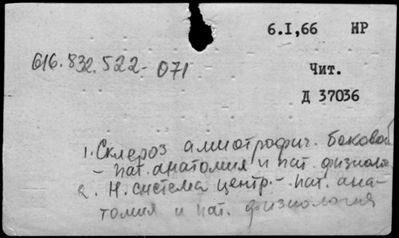 6.I,66 НР
616.832.522-071
Чит.
Д 37036
1. Склероз амиотрофич. боковой
- пат. анатомия и пат. физиология
2. Н. система центр. - пат. ана-
томия и пат. физиология